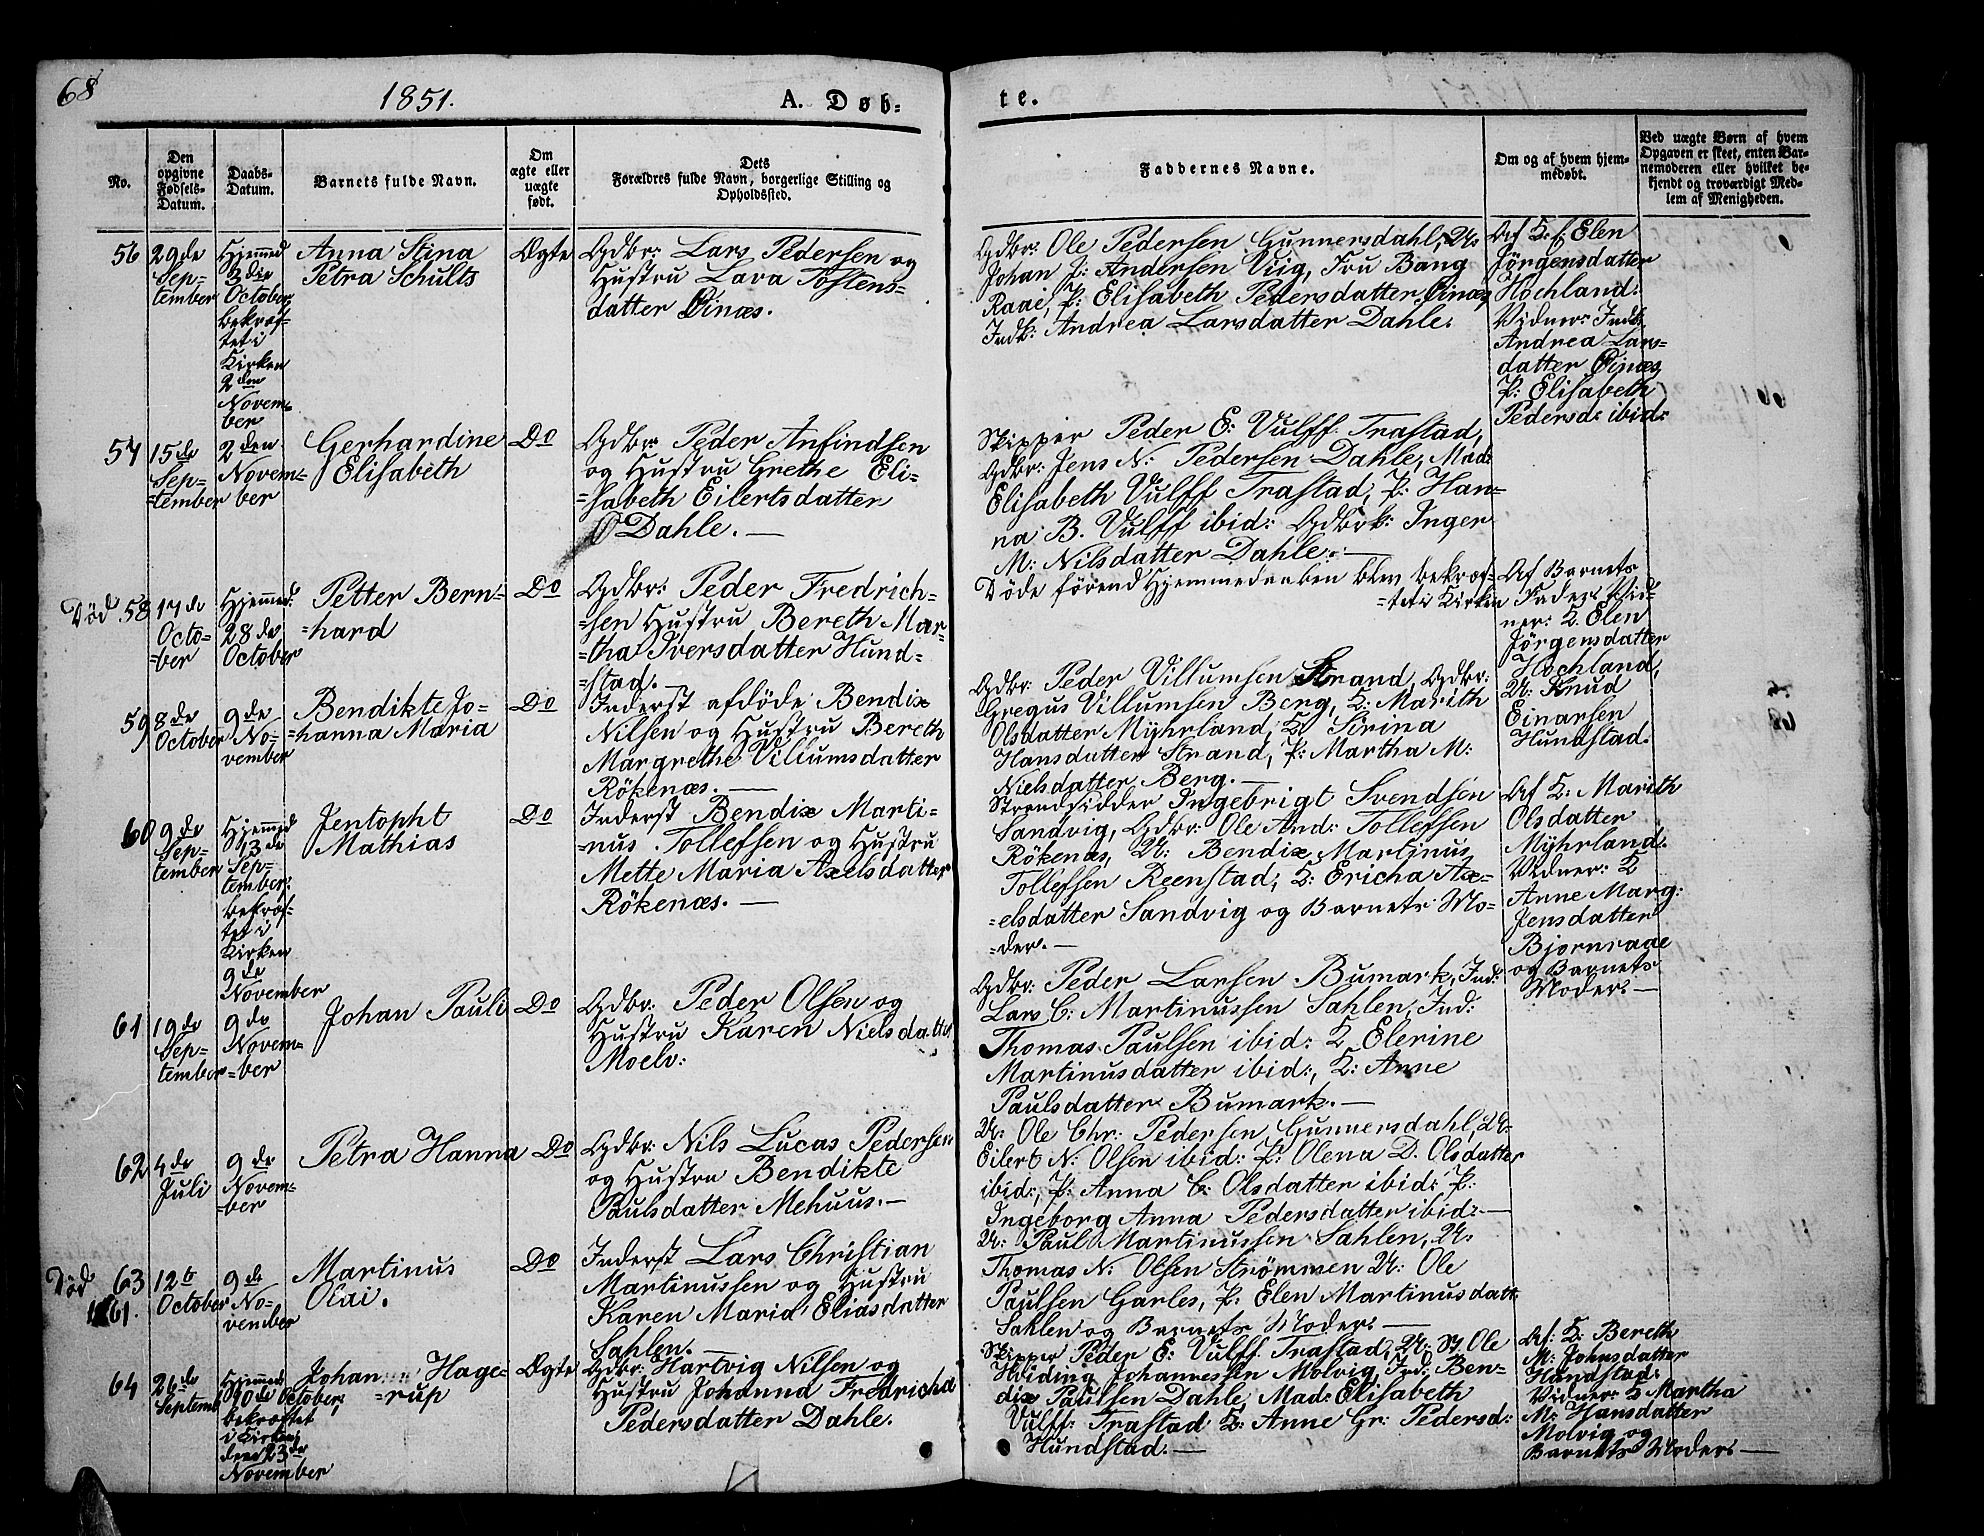 68
1851.
A. Døb=
te.
No.
Den opgivne Fødsels-Datum.
Daabs-Datum.
Barnets fulde Navn.
Om ægte eller uægte født.
Dets Forældres fulde Navn, borgerlige Stilling og Opholdssted.
Faddernes Navne.
Om og af hvem hjemmedøbt.
Ved uægte Børn af hvem Opgaven er skeet, enten Barnemoderen eller hvilket bekjendt og troværdigt Medlem af Menigheden.
56
29de
Sep-
tember
Hjemmed
3die
October
bekræf-
tet i
Kirken
2den
Novem-
ber
Anna Stina
Petra Schults
Ægte
Gdbr: Lars Pedersen og
Hustru Lava Tostens=
datter Øinæs.
Gdbr: Ole Pedersen Gunnersdahl, U:
Johan P: Andersen Viig, Fru Bang
Raae, P: Elisabeth Pedersdatter Øinæs
Indk: Andrea Larsdatter Dahle.
Af K. Elen
Jörgensdatter
Hochland:
Vidner: Indk:
Andrea Lars=
datter Øinæs,
P: Elisabeth
Pedersd: ibid:
57
15de
Sep-
=tember
2den
Novem-
=ber
Gerhardine
Elisabeth
Do
Gdbr: Peder Anfindsen
og Hustru Grethe Eli-
=sabeth Eilertsdatter
Dahle. —
Skipper Peder E: Vulff Trastad,
Gdbr: Jens N: Pedersen Dahle, Mad:
Elisabeth Vulff Trastad, P: Han=
na B. Vulff ibid: Gdbrk: Inger
M: Nilsdatter Dahle. —
Död 58
17de
Octo-
=ber
Hjemmed:
28de
October
Petter Bern-
=hard
Do
Gdbr: Peder Fredrich-
=sen Hustru Bereth Mar-
=tha Iversdatter Hund-
=stad.
Döde förend Hjemmedaaben blev bekræf-
=tet i Kirken
Af Barnets
Fader. Vid-
ner: K. Elen
Jörgensdatter
Hochland,
U: Knud
Einarsen
Hundstad.
59
8de
October
9de
No-
vember
Bendikte Jo-
=hanna Maria
Do
Inderst afdöde Bendix
Nilsen og Hustru Bereth
Margrethe Villumsdatter
Rökenæs. —
Gdbr: Peder Villumsen Strand, Gdbr:
Gregus Villumsen Berg, K: Marith
Olsdatter Myhrland, K: Sirina
Hansdatter Strand, P: Martha M:
Nielsdatter Berg. —
60
9de
Sep-
tember
Hjemmed
13de
Sep-
tember:
bekræf-
tet i
Kirken
9de
November
Jentopht
Mathias
Do
Inderst Bendix Marti-
=nus Tollefsen og Hustru
Mette Maria Axelsdatter
Rökenæs. —
Strandsidder Ingebrigt Svendsen
Sandvig, Gdbr: Ole And: Tollefsen
Rökenæs, U: Bendix Martinus
Tollefsen Reenstad, K: Ericha Ax-
=elsdatter Sandvig og Barnets Mo-
=der. —
Af K. Marith
Olsdatter
Myhrland.
Vidner: K
Anne Marg:
Jensdatter
Bjornraae
og Barnets
Moder. —
61
19de
Sep-
tember
9de
Novem-
=ber
Johan Pauli
Do
Gdbr: Peder Olsen og
Hustru Karen Nielsdatter
Moelv:
Gdbr: Peder Larsen Bumark, Ind:
Lars C: Martinussen Sahlen, Ind:
Thomas Paulsen ibid: K Elerine
Martinusdatter ibid:, K: Anne
Paulsdatter Bumark. —
62
4de
Juli
9de
Novem-
=ber
Petra Hanna
Do
Gdbr: Nils Lucas Pedersen
og Hustru Bendikte
Paulsdatter Mehuus. —
U: Ole Chr: Pedersen Gunnersdahl, U:
Eilert N: Olsen ibid: P: Olena D. Olsdatter
ibid:, P: Anna C: Olsdatter ibid: P:
Ingeborg Anna Pedersdatter ibid: —
Död
1861.
63
12te
October
9de
No-
vember
Martinus
Olai.
Do
Inderst Lars Christian
Martinussen og Hustru
Karen Maria Eliasdatter
Sahlen. —
U: Paul Martinussen Sahlen, U:
Thomas N: Olsen Strömmen U: Ole
Paulsen Garles, P: Elen Martinusdatt:
Sahlen og Barnets Moder. —
64
26de
Septemb
Hjemmed
10de October,
bekræftet
i Kirken
den 23de
November
Johan Hage-
=rup
Ægte
Gdbr: Hartvig Nilsen og
Hustru Johanna Fredricha
Pedersdatter Dahle.
Skipper Peder E: Vulff Trastad, U: St Ole
Hviding Johannessen Molvig, Ind: Ben-
dix Paulsen Dahle, Mad: Elisabeth
Vulff: Trastad K: Anne Gr: Pedersd:
Hundstad. —
Af: K: Bereth
M: Johnsdatter
Hundstad:
Vidner: K Martha
M: Hansdatter
Molvig og
Barnets Moder. —